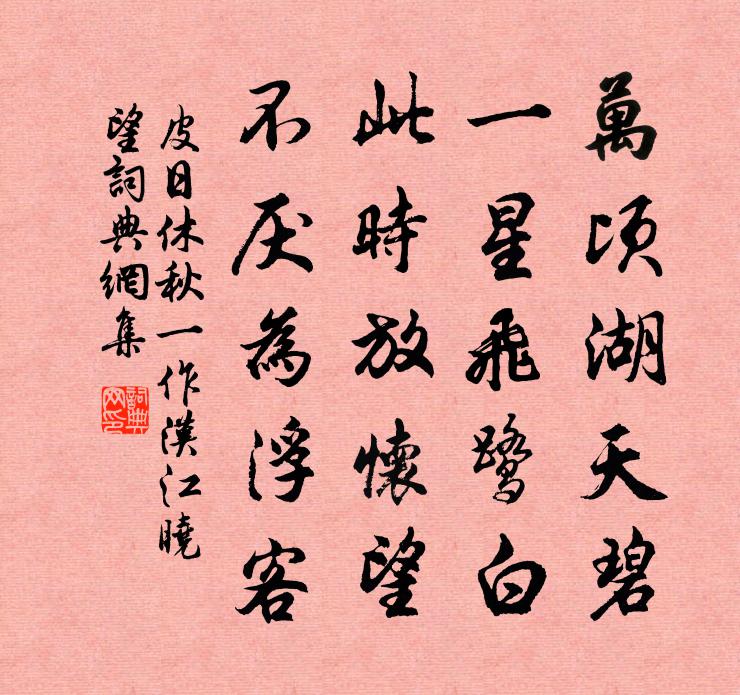 萬頃湖天碧
一星飛鷺白
此時放懷望
不厌為浮客
皮日休秋一作漢江曉
望詞典網集
詞典网印